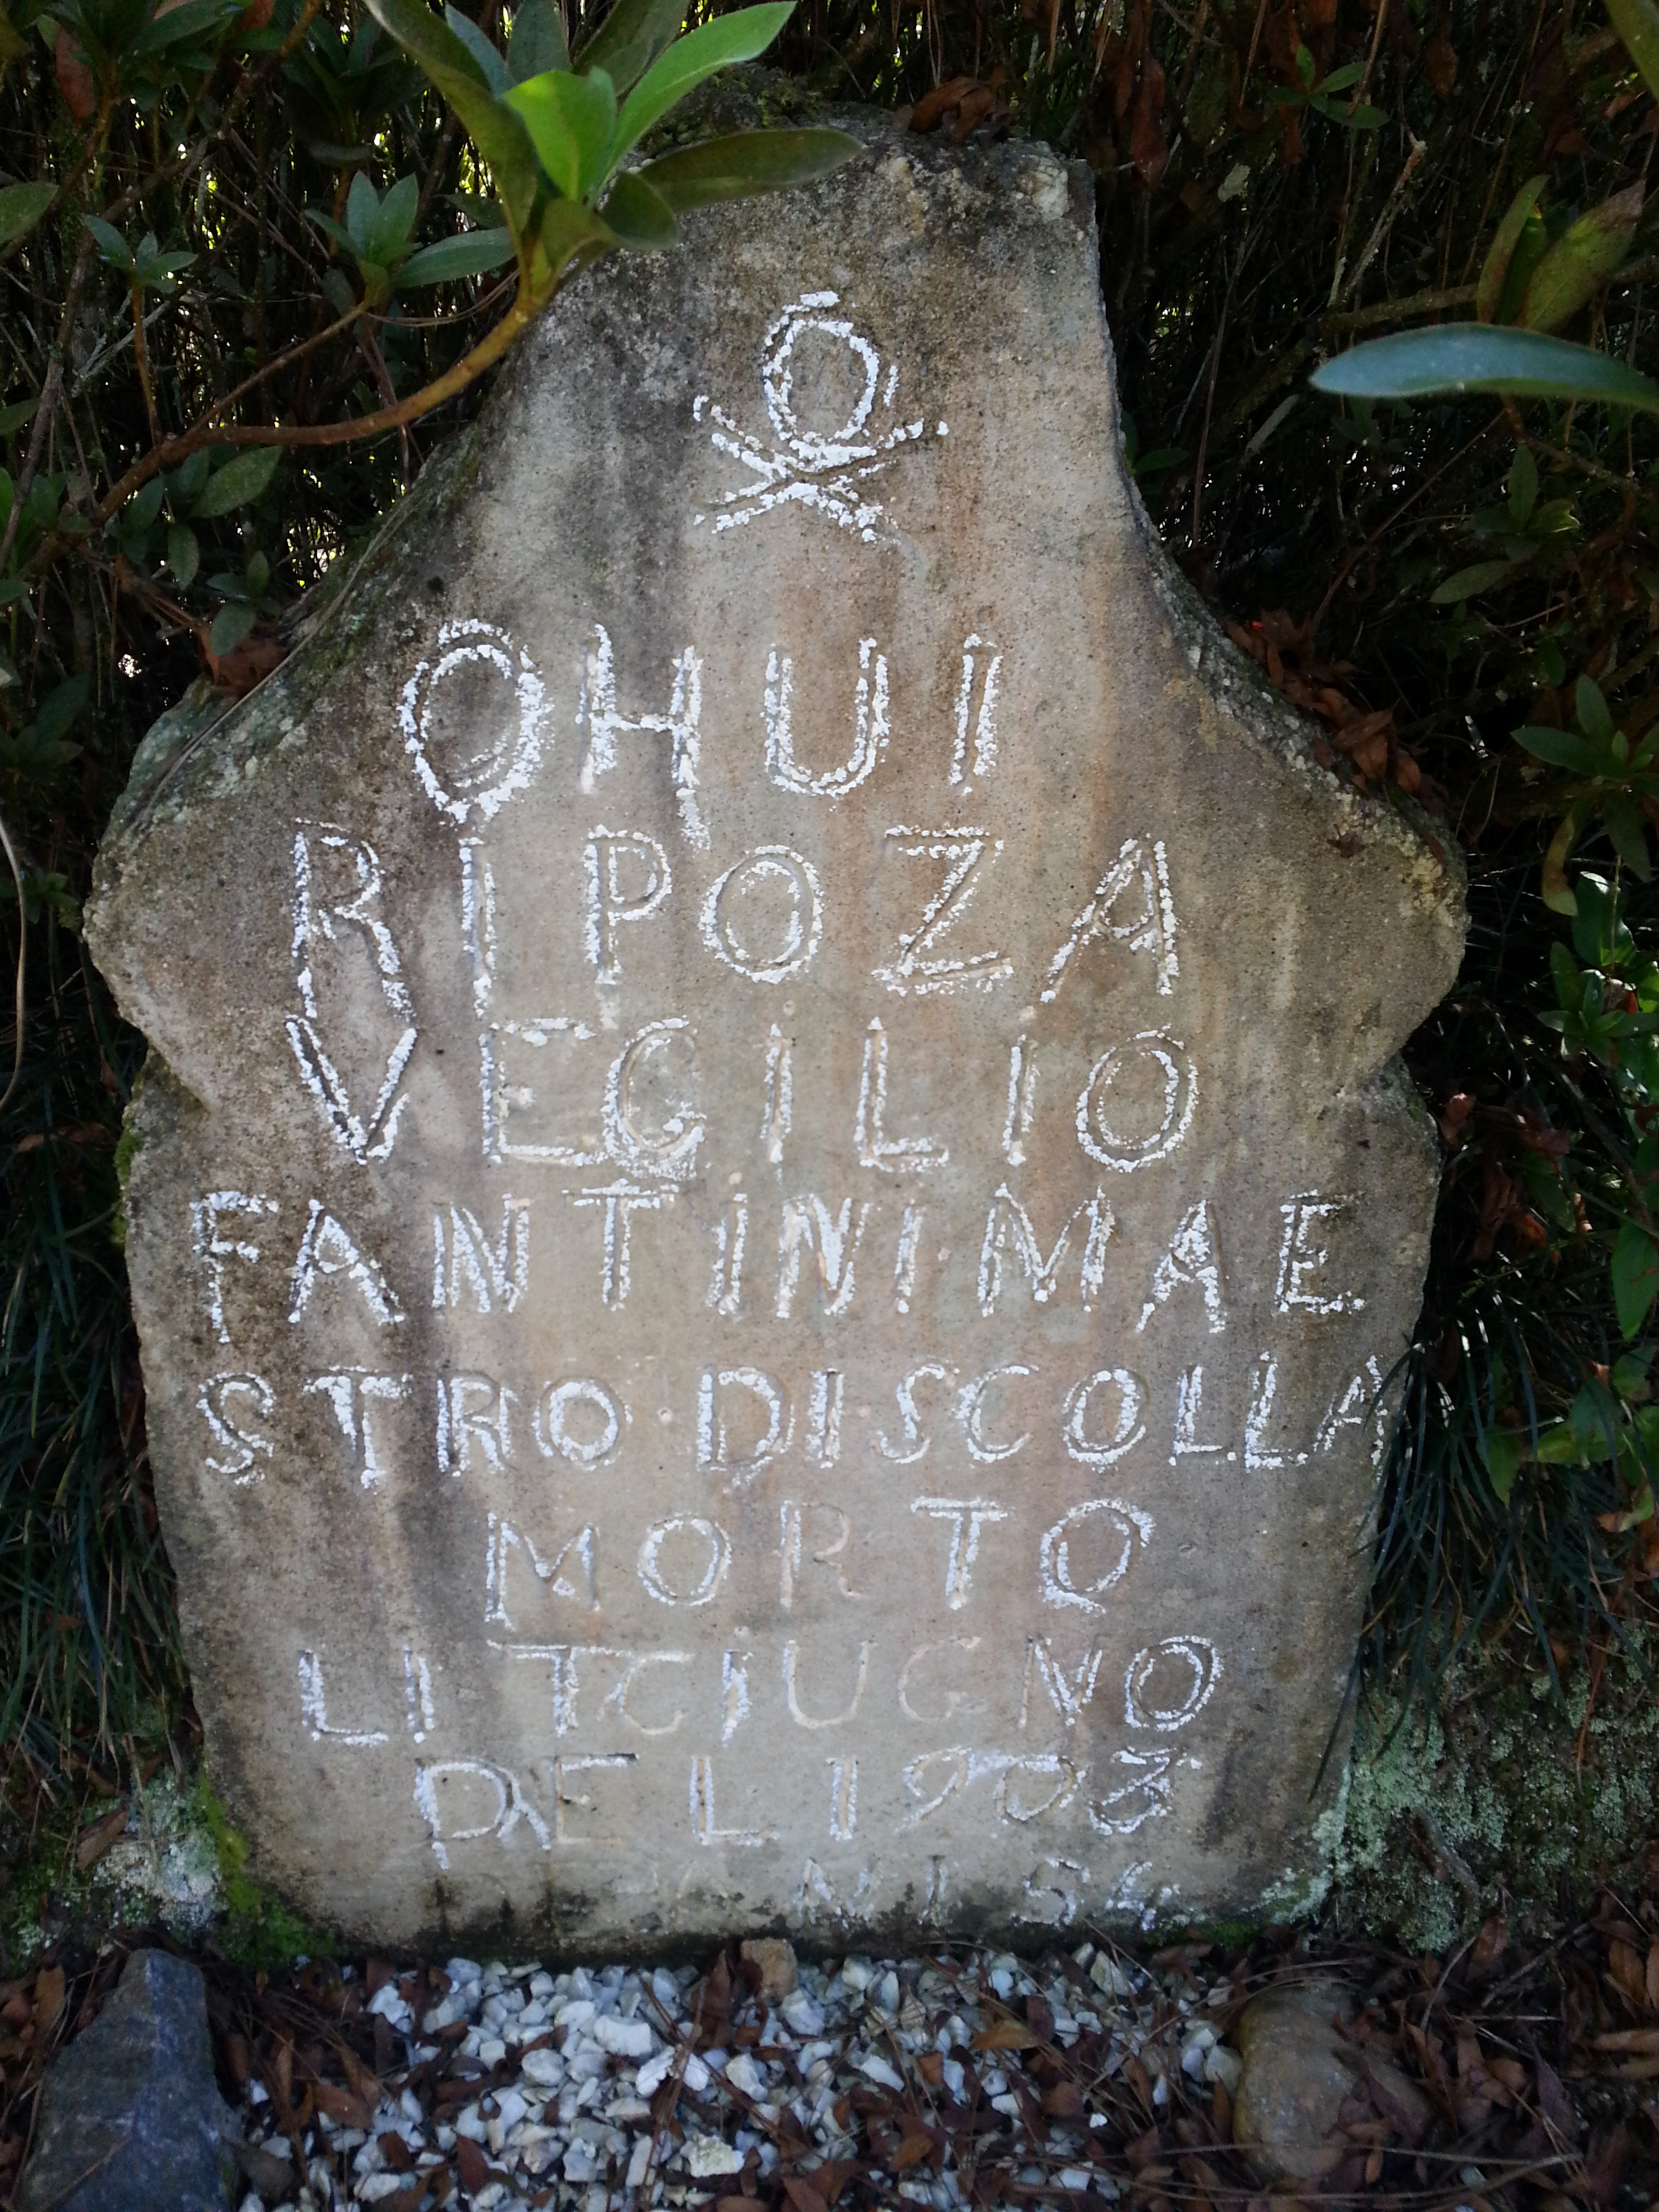 QHUI
RIPOZA
VEGILIO
FANTINIMAE
STRO·DI·SCOLLA
MORTO
LI T GIUGNO
DEL 1903
ANI 54